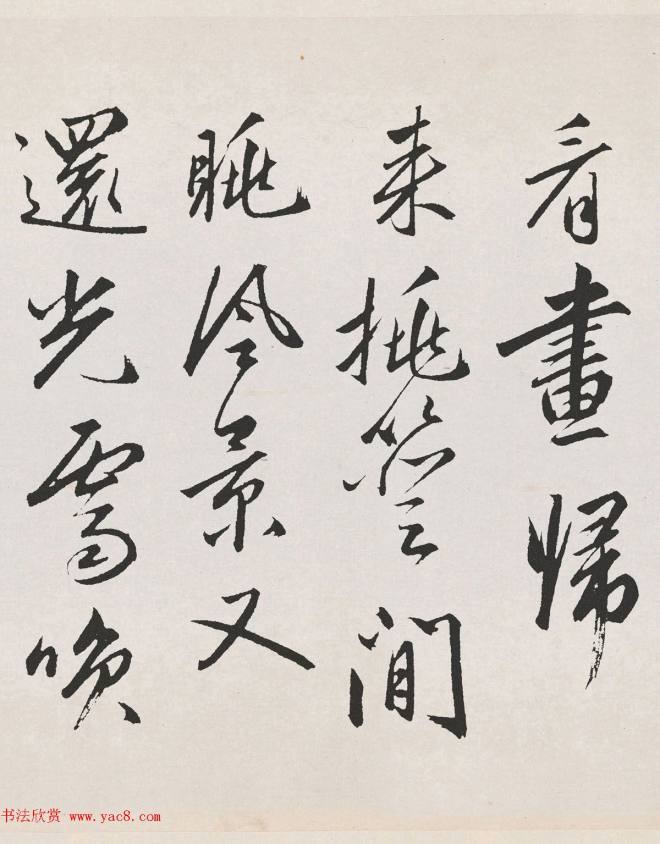 看畫歸
来挑閒
眺風景又
還光霽喚
书法欣赏 www.yac8.com